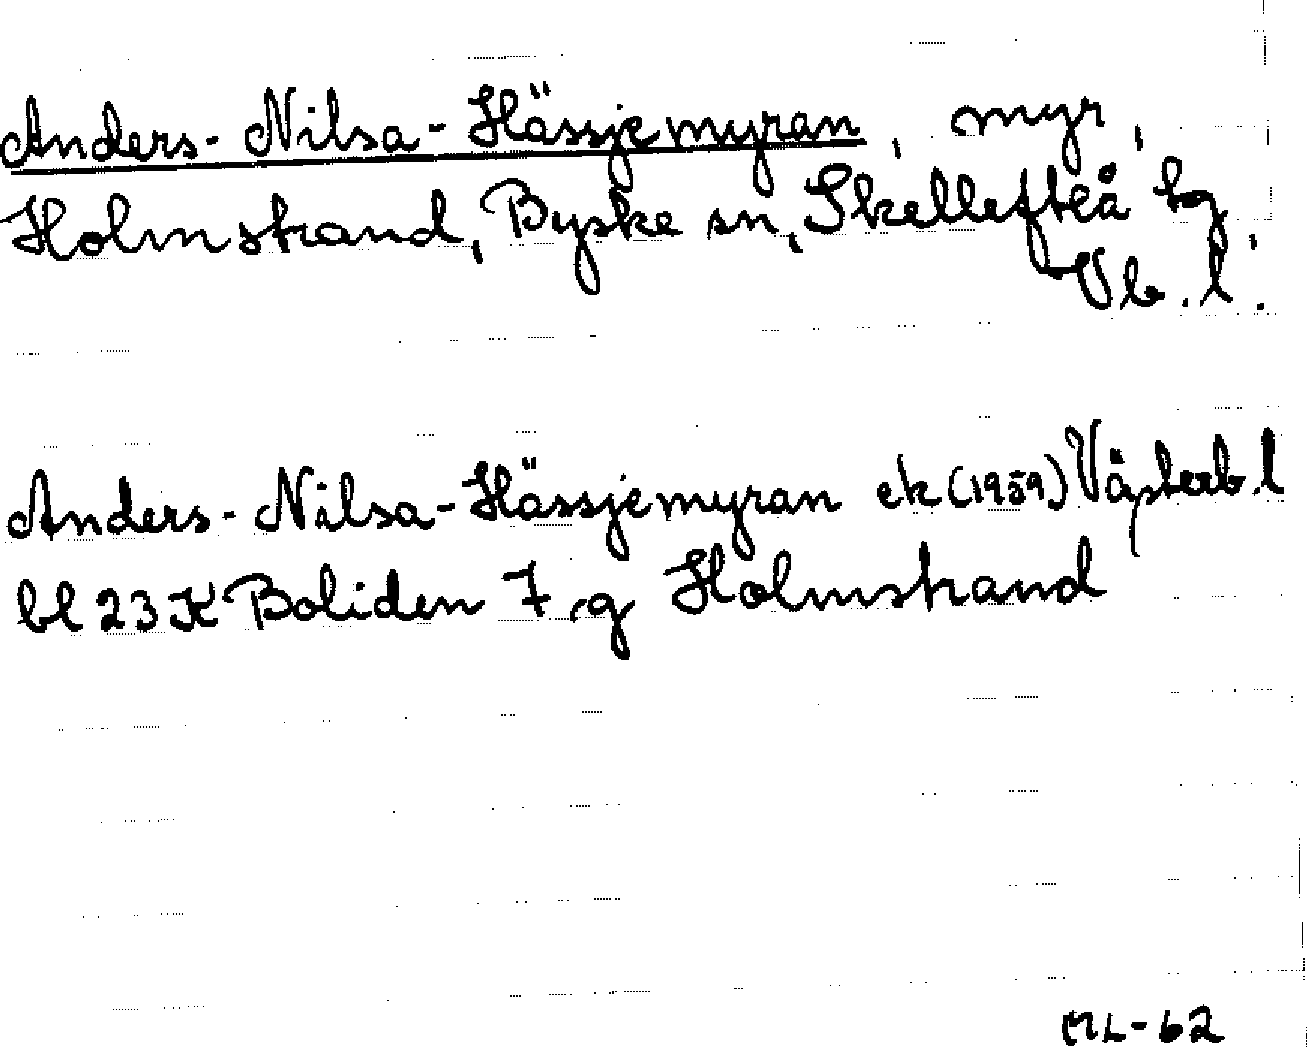 Anders-Nilsa-Hässjemyran, myr,
Holmstrand, Byske sn, Skellefteå tg,
Vb. l.
Anders-Nilsa-Hässjemyran ek (1959) Västerb. l
bl 23 K Boliden 7 g Holmstrand
ML-62